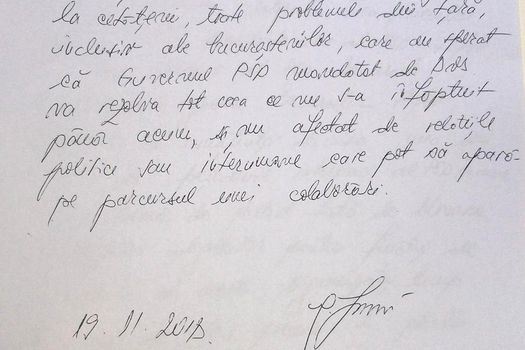 la cetățeni, toate problemele din țară,
inclusiv ale bucureștenilor, care au sperat
că Guvernul PSD mandatat de Dvs
va rezolva tot ceea ce nu s-a înfăptuit
până acum, și nu afectat de relațiile
politice sau interumane care pot să apară
pe parcursul unei colaborări.
19.11.2018